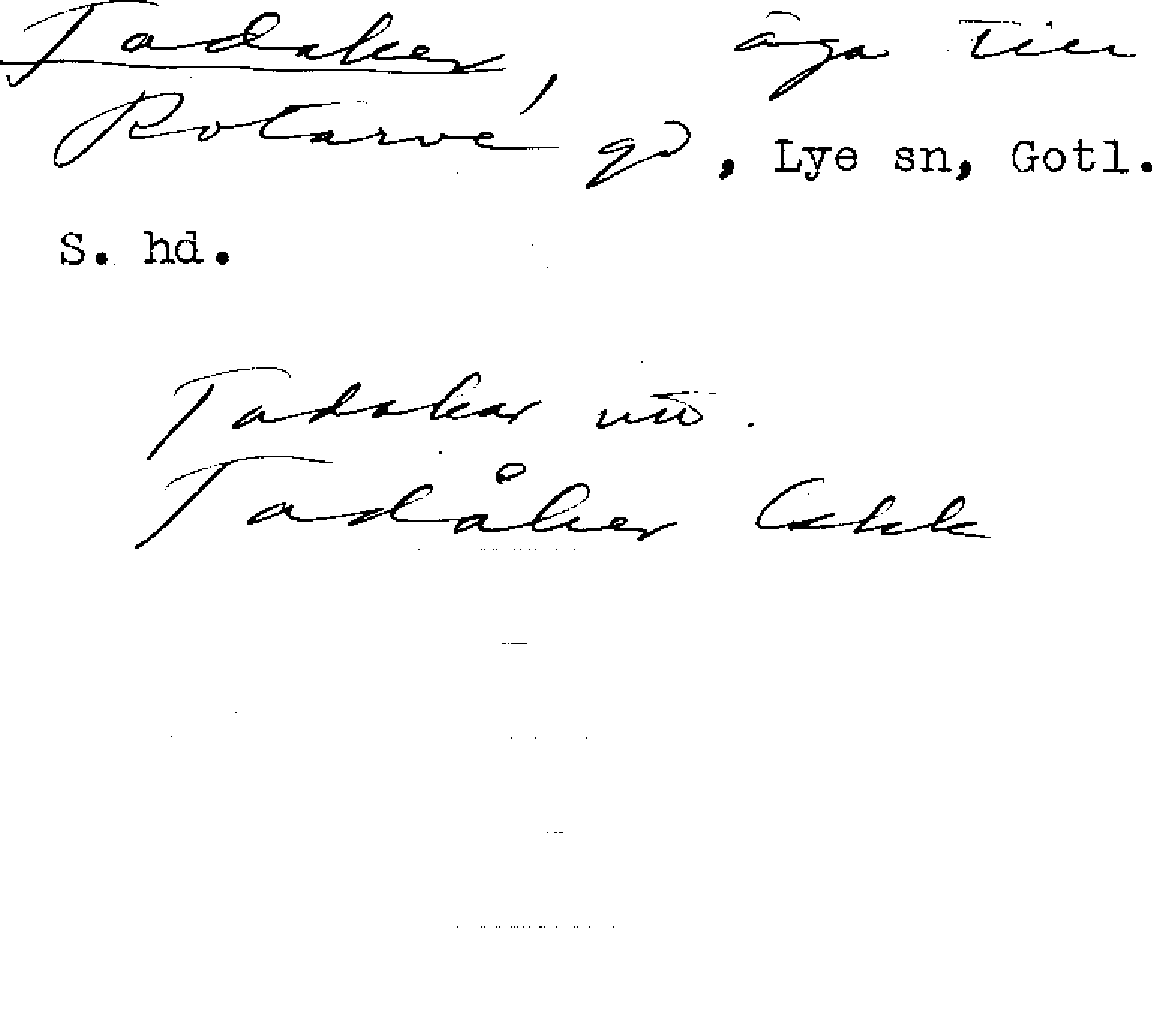 Tadaker, äga till
Rotarve gd, Lye sn, Gotl.
S. hd.
Tadakar utt.
Tadåker Ekk